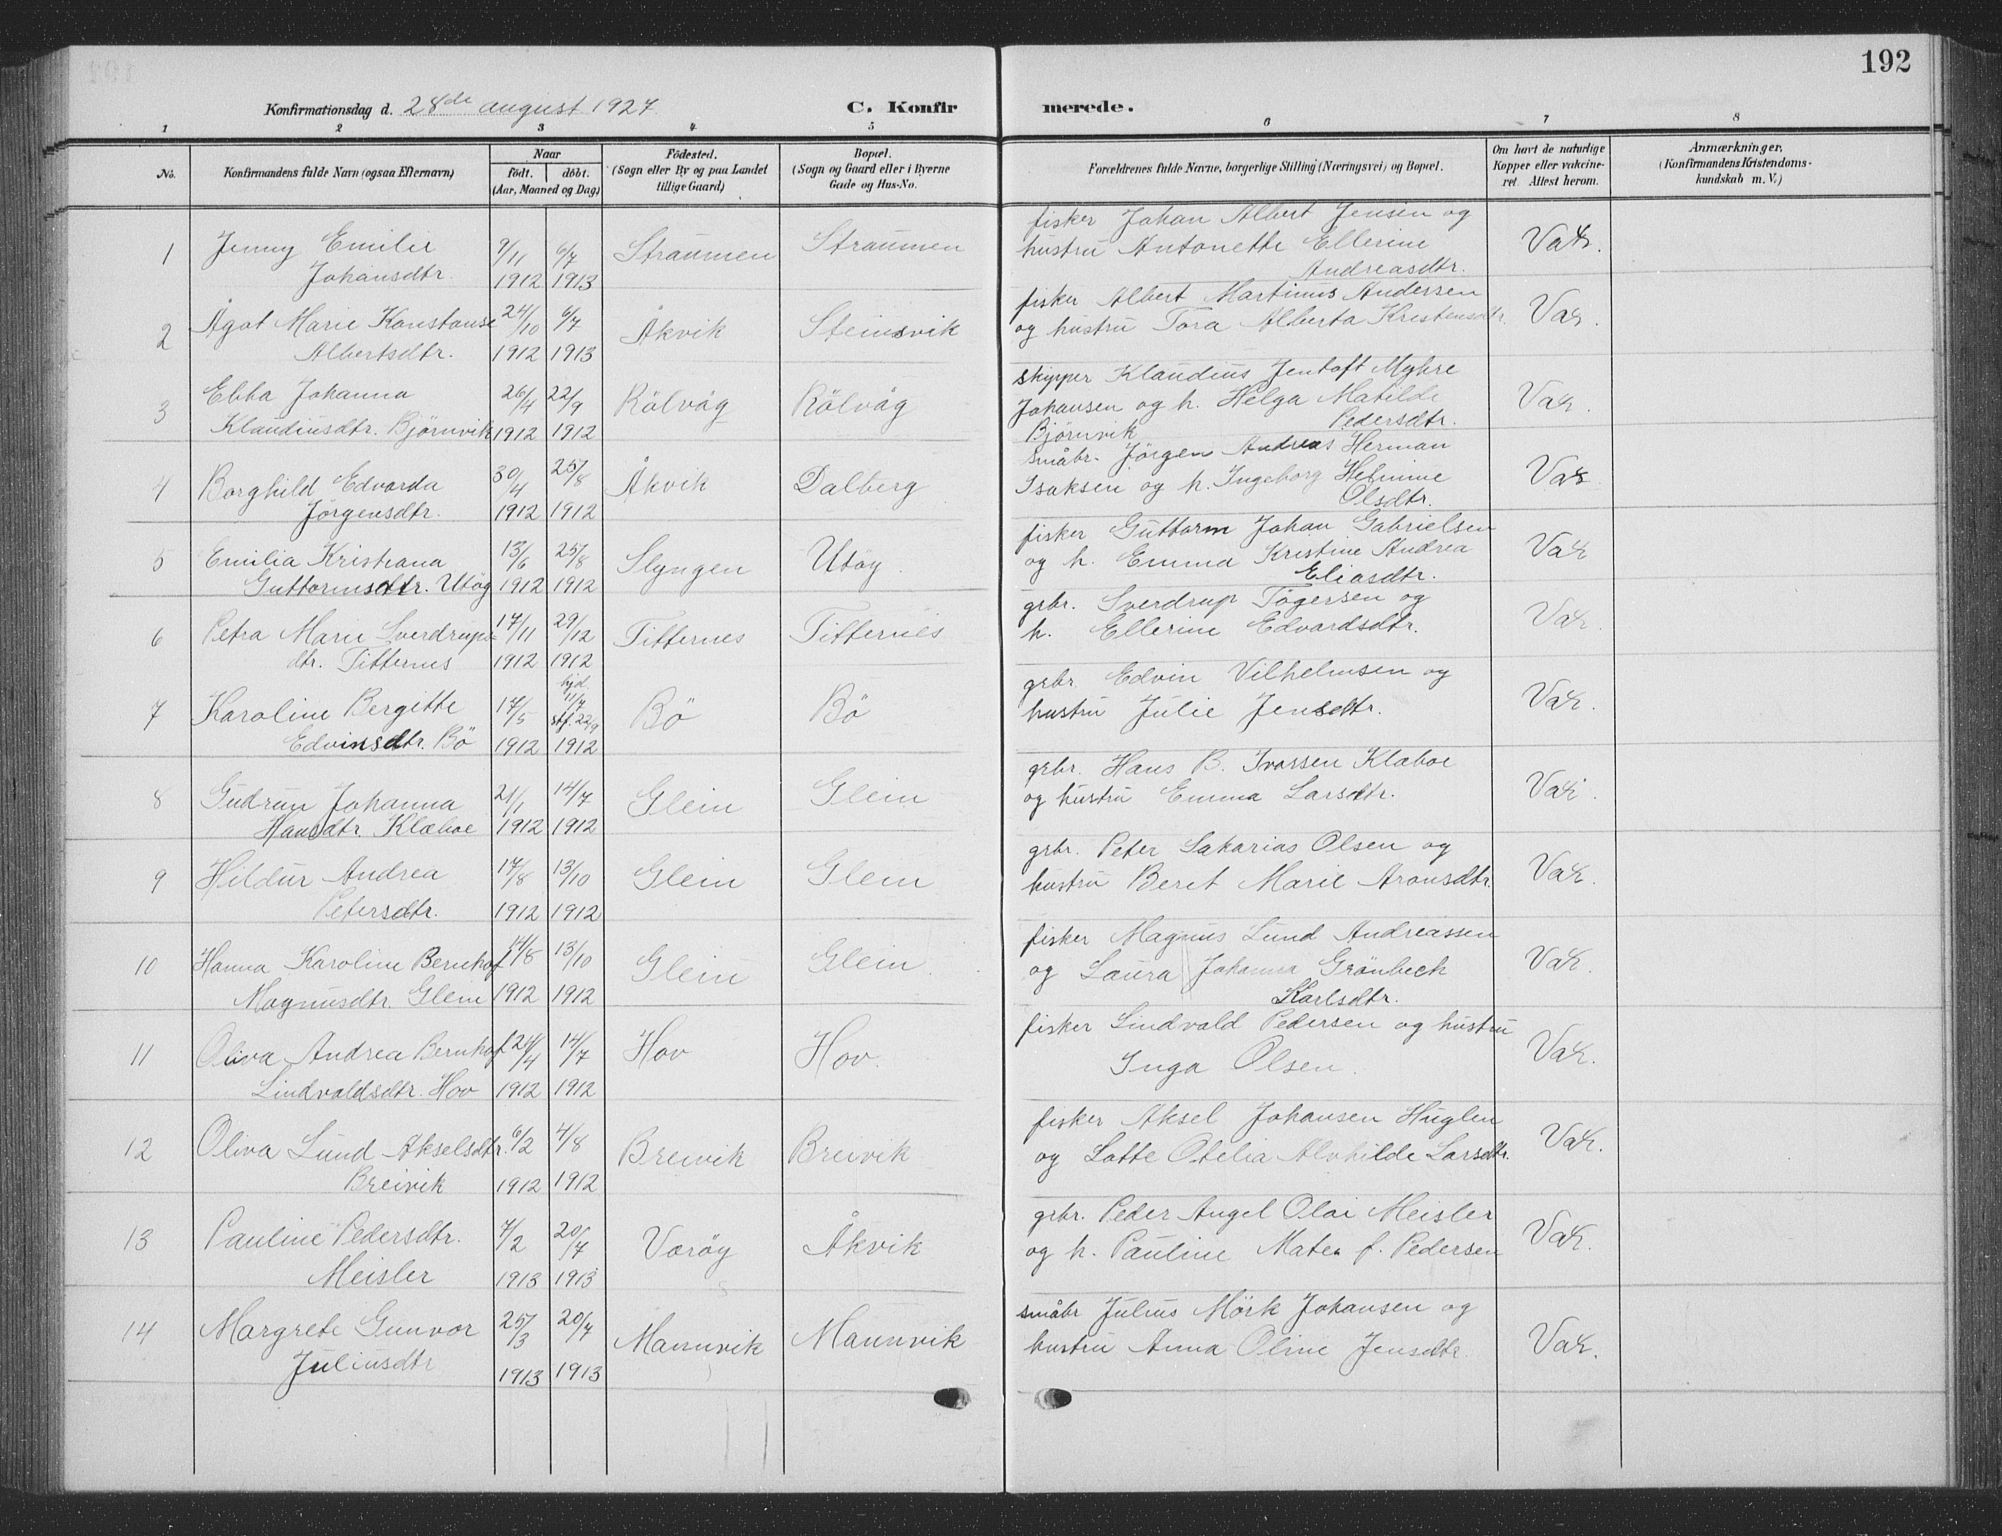 192
Konfirmationsdag d. 28de august 1927
C. Konfirmerede.
1 2 3 4 5 6 7 8
No.
Konfirmandens fulde Navn (ogsaa Efternavn)
Naar
födt. döbt.
(Aar, Maaned og Dag)
Födested.
(Sogn eller By og paa Landet
tillige Gaard)
Bopæl.
(Sogn og Gaard eller i Byerne
Gade og Hus-No.
Forældrenes fulde Navne, borgerlige Stilling (Næringsvei) og Bopæl.
Om havt de naturlige
Kopper eller vakcine-
ret Attest herom.
Anmærkninger,
(Konfirmandens Kristendoms-
kundskab m. V.)
1 Jenny Emilie 9/11 6/7 Straumen Straumen fisker Johan Albert Jensen og Vak.
Johansdtr. 1912 1913 hustru Antonette Ellerine
Andreasdtr.
2 Ågot Marie Konstanse 24/10 6/7 Åkvik Steinsvik fisker Albert Martinus Andersen Vak.
Albertsdtr. 1912 1913 og hustru Tora Alberta Kristensdtr.
3 Ebba Johanna 26/4 22/9 Rölvåg Rölvåg skipper Klaudius Jentoft Myhre Vak.
Klaudiusdtr. Björnvik 1912 1912 Johansen og h. Helga Matilde
Björnvik Pedersdtr.
4 Borghild Edvarda 30/4 25/8 Åkvik Dalberg småbr. Jörgen Andreas Herman Vak
Jörgensdtr. 1912 1912 Isaksen og h. Ingeborg Helmine
Olsdtr.
5 Emilia Kristiana 13/6 25/8 Slyngen Utöy. fisker Guttorm Johan Gabrielsen Vak
Guttormsdtr. Utög 1912 1912 og h. Emma Kristine Andrea
Eliasdtr.
6 Petra Marie Sverdrups 17/11 29/12 Titternes Titternes grbr. Sverdrup Tögersen og Vak
dtr. Titternes 1912 1912 h. Ellerine Edvardsdtr.
7 Karoline Bergitte 17/5 hjd. 11/7 stf. 22/9 Bö Bö grbr. Edvin Vilhelmsen og Vak.
Edvinsdtr. Bö 1912 1912 hustru Julie Jensdtr.
8 Gudrun Johanna 21/1 14/7 Glein Glein grbr. Hans B. Ivarsen Klæboe Vak.
Hansdtr. Klæboe 1912 1912 og hustru Emma Larsdtr.
9 Hildur Andrea 17/8 13/10 Glein Glein grbr. Peter Sakarias Olsen og Vak.
Petersdtr. 1912 1912 hustru Beret Marie Aronsdtr.
10 Hanna Karoline Bernhof 14/8 13/10 Glein Glein fisker Magnus Lund Andreassen Vak.
Magnusdtr. Glein 1912 1912 og Laura Johanna Grönbech
Karlsdtr.
11 Oliva Andrea Bernhof 24/4 14/7 Hov Hov. fisker Lindvald Pedersen og hustru Vak.
Lindvaldsdtr. Hov 1912 1912 Inga Olsen.
12 Oliva Lund Akselsdtr. 6/2 4/8 Breivik Breivik fisker Aksel Johansen Huglen Vak.
Breivik 1912 1912 og Lotte Otelia Alvhilde Larsdtr.
13 Pauline Pedersdtr. 7/2 20/7 Væröy Åkvik grbr. Peder Angel Olai Meisler Vak.
Meisler 1913 1913 og h. Pauline Matea f. Pedersen
14 Margrete Gunvor 25/3 20/7 Mannvik Mannvik småbr Julius Mörk Johansen og Vak.
Juliusdtr 1913 1913 hustru Anna Oline Jensdtr.